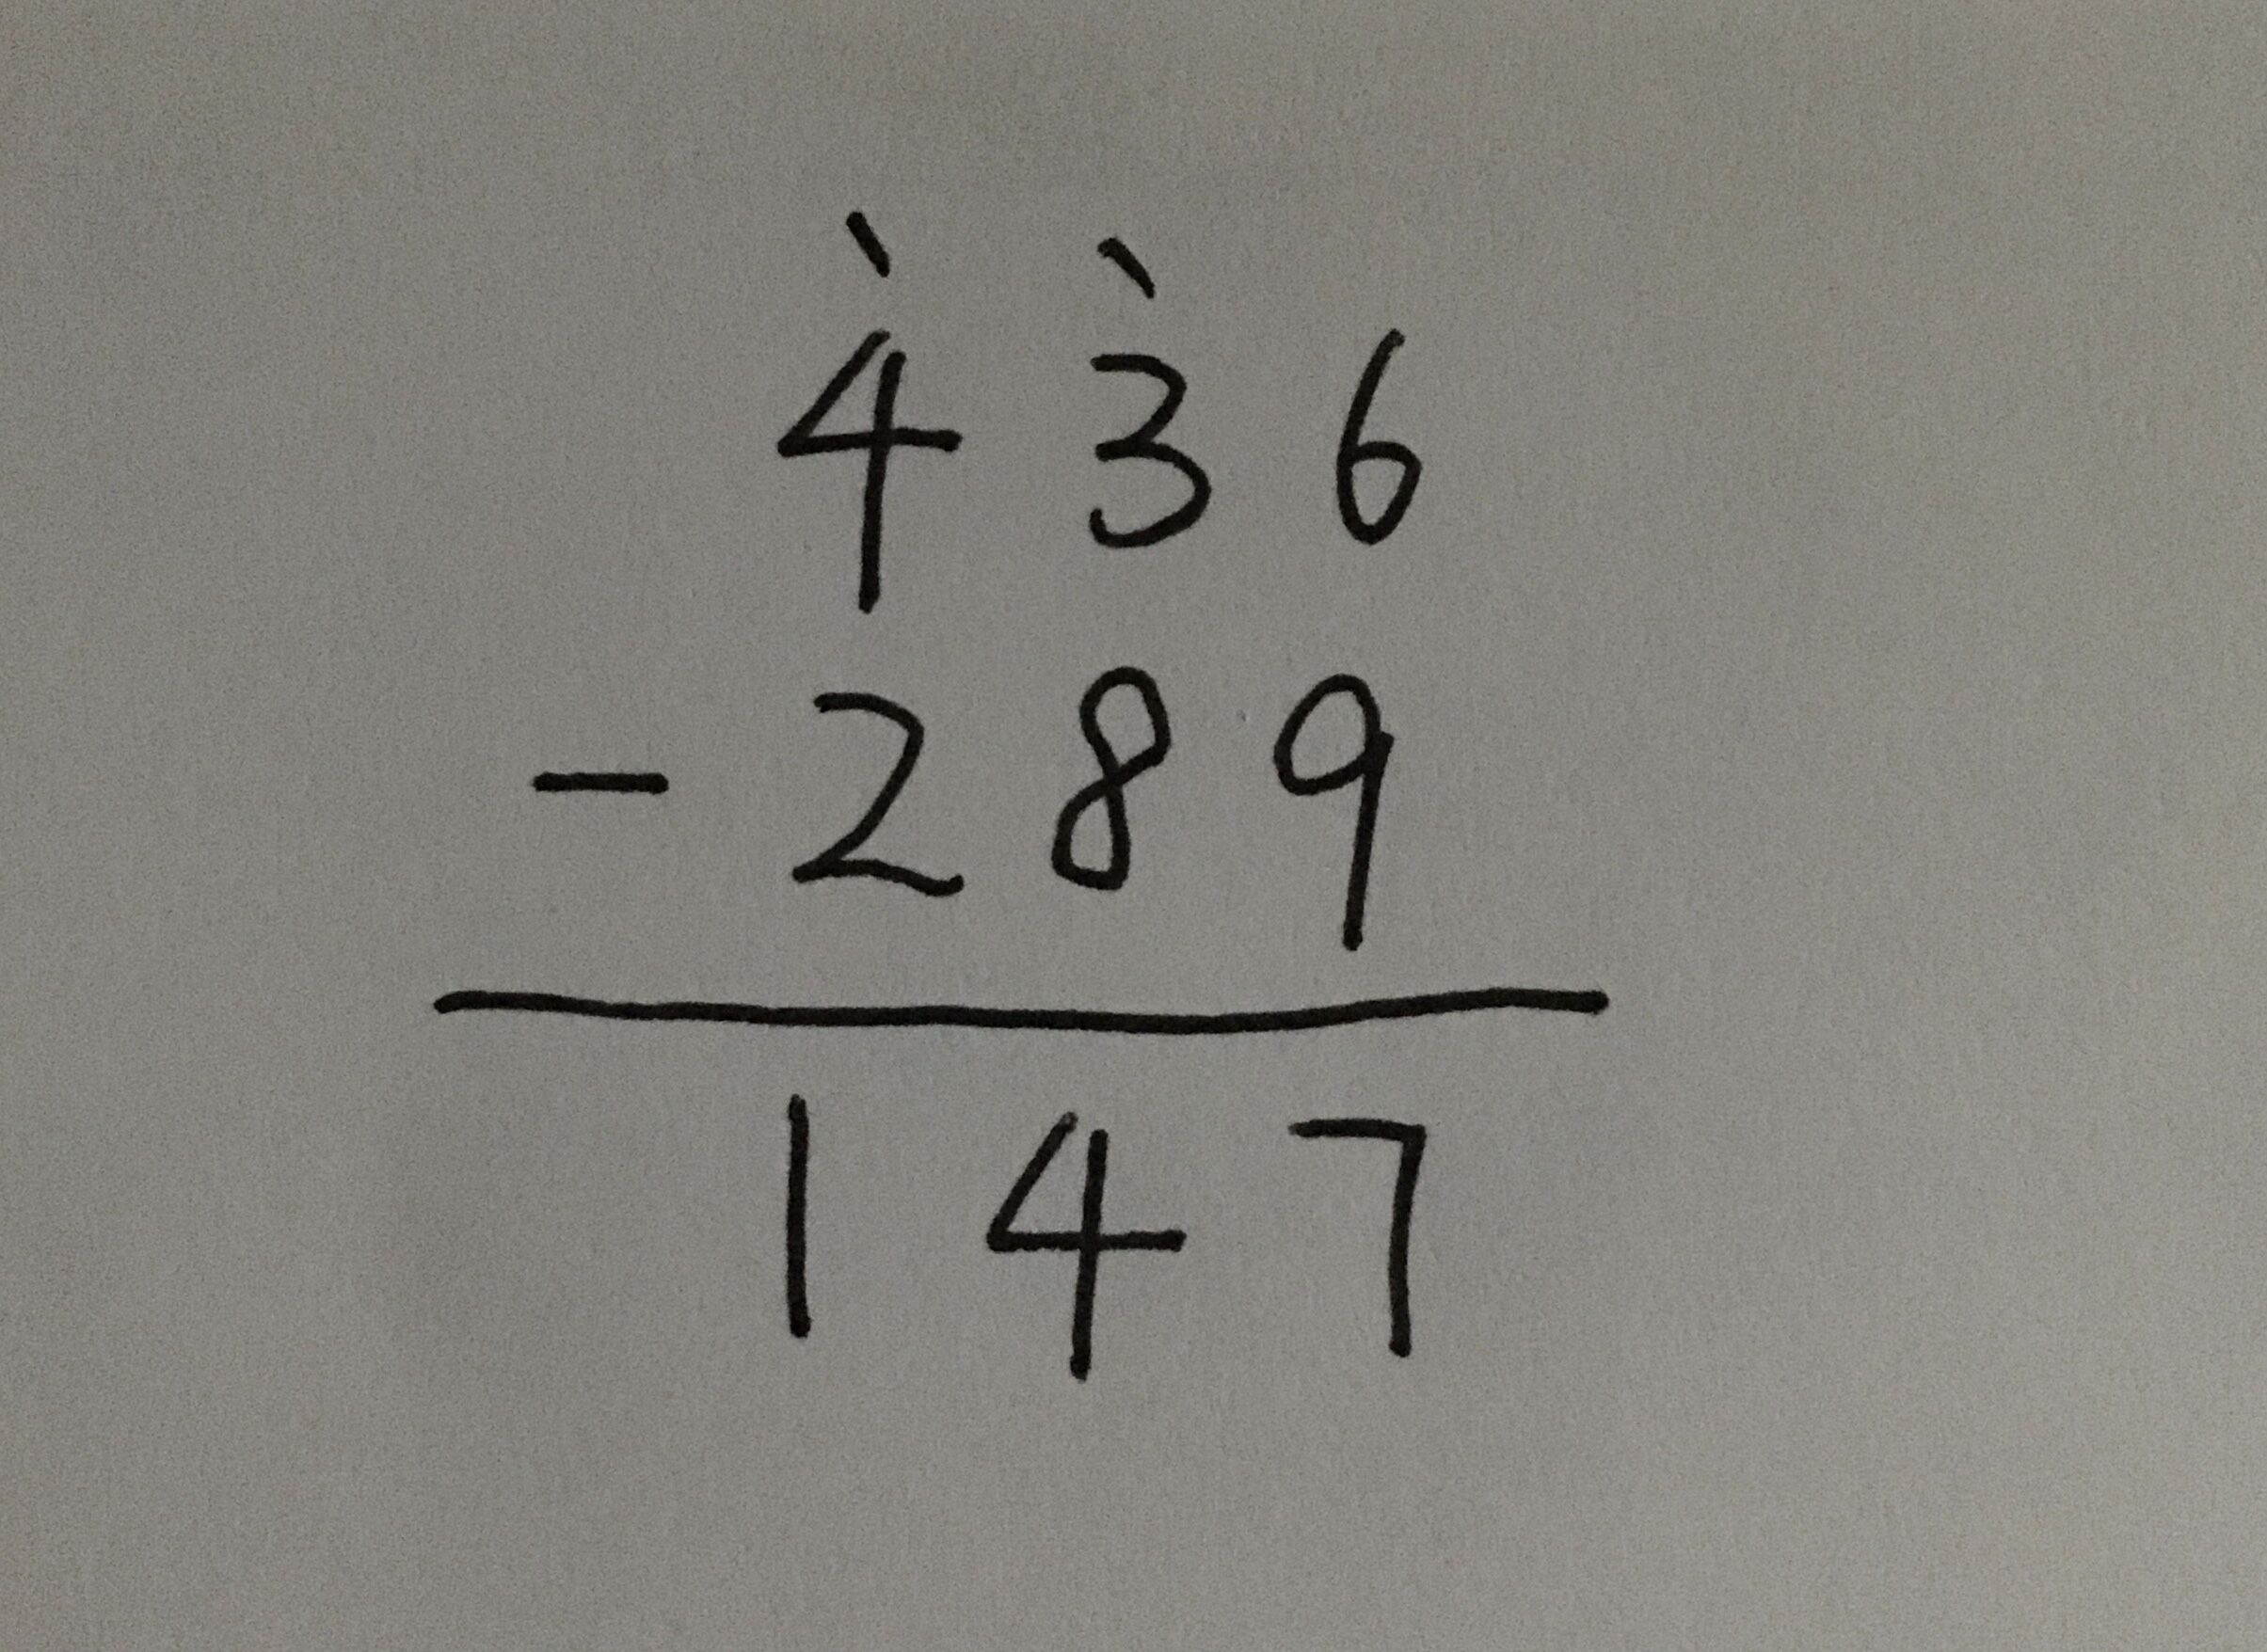 436
- 289
147